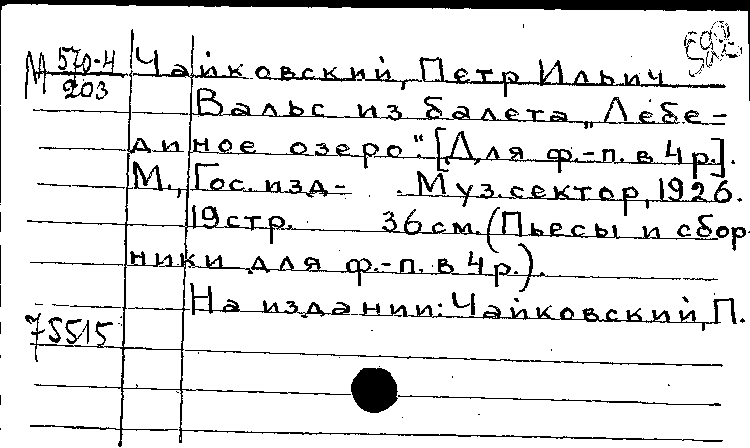 592
М 570-4 Чайковский, Петр Ильич
203
Вальс из балета „Лебе-
диное озеро". [Для ф.-п. в 4 р.].
М., Гос. изд- . Муз. сектор, 1926.
19 стр. 36 см. (Пьесы и сбор-
ники для ф.-п. в 4 р.).
На издании: Чайковский, П.
75515